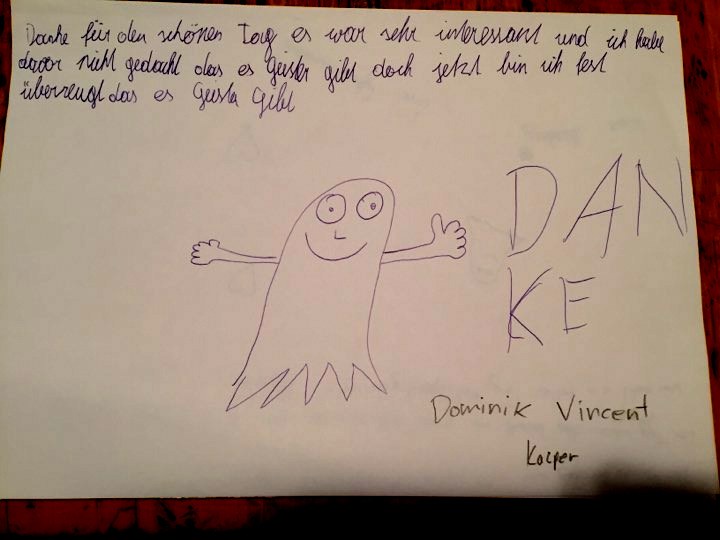 Danke für den schönen Tag es war sehr interessant und ich habe
davor nicht gedacht das es Geister gibt doch jetzt bin ich fest
überzeugt das es Geister Gibt
DAN
KE
Dominik Vincent
Kacper